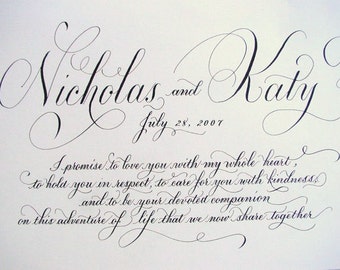 Nicholas and Katy
July 28, 2007
I promise to love you with my whole heart,
to hold you in respect, to care for you with kindness,
and to be your devoted companion
on this adventure of life that we now share together